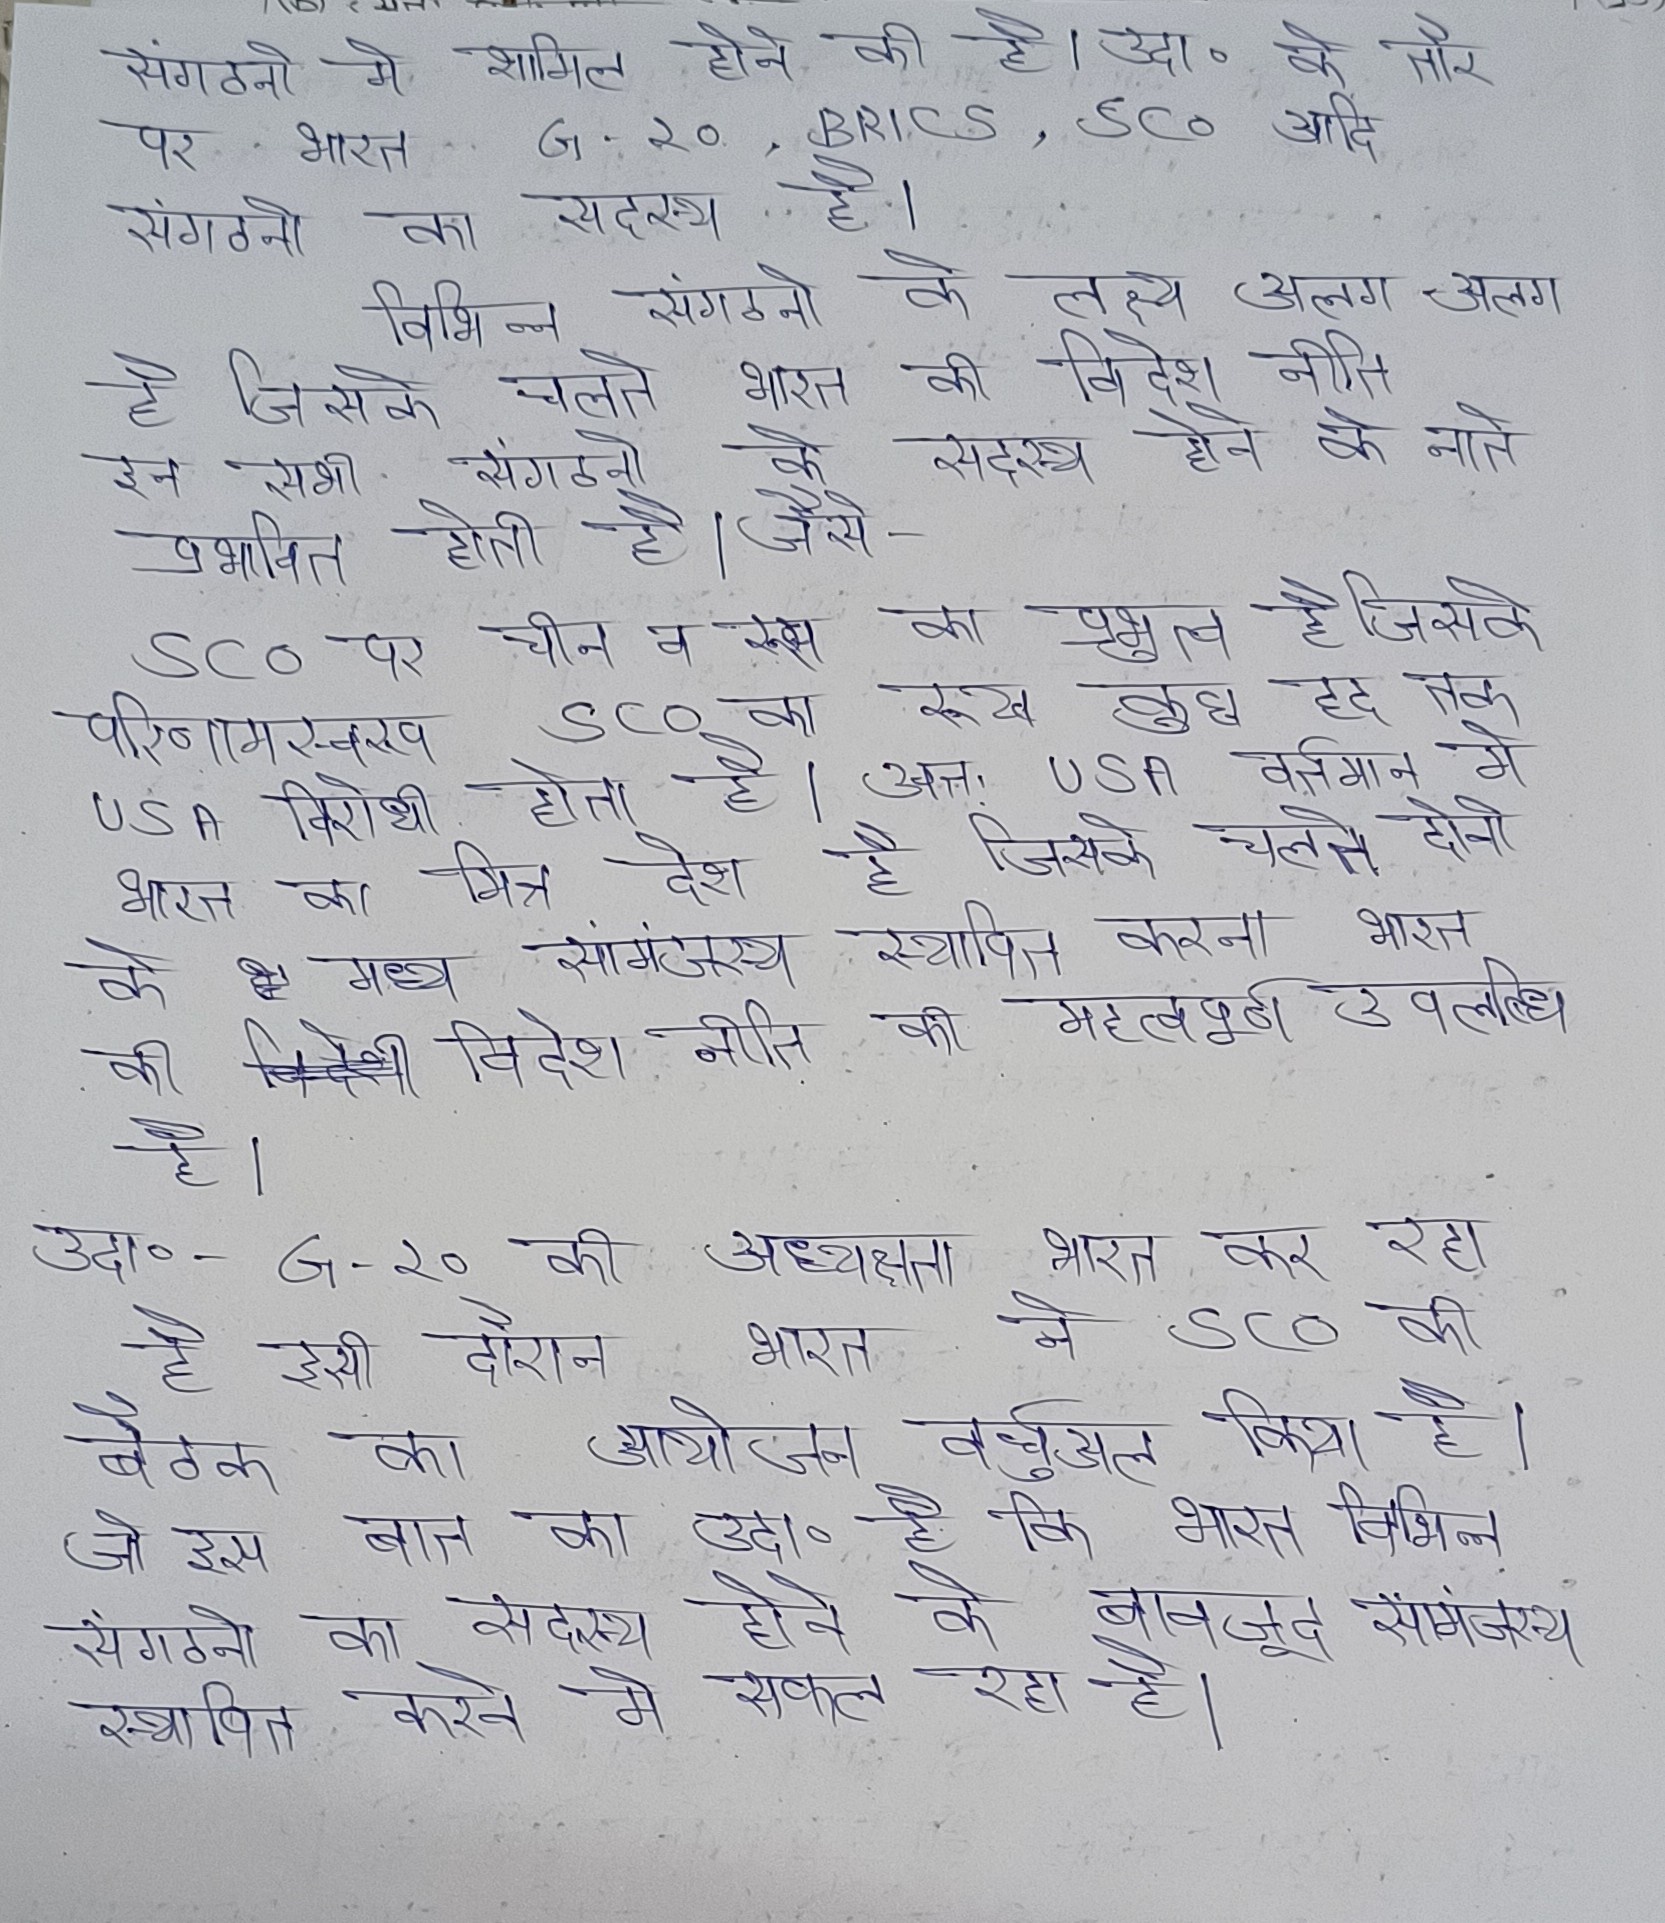 संगठनो मे शामिल होने की है। उदा० के तौर
पर भारत G-२०, BRICS, SCO आदि
संगठनो का सदस्य है।
विभिन्न संगठनो के लक्ष्य अलग अलग
है जिसके चलते भारत की विदेश नीति
इन सभी संगठनो के सदस्य होने के नाते
प्रभावित होती है। जैसे-
SCO पर चीन व रूस का प्रभुत्व है जिसके
परिणामस्वरुप SCO का रूख कुछ हद तक
USA विरोधी होता है। अतः USA वर्तमान मे
भारत का मित्र देश है जिसके चलते दोनो
के मध्य सांमंजस्य स्थापित करना भारत
की विदेश नीति की महत्वपूर्ण उपलब्धि
है।
उदा०- G-२० की अध्यक्षता भारत कर रहा
है इसी दौरान भारत ने SCO की
बैठक का आयोजन वर्चुअल किया है।
जो इस बात का उदा० है कि भारत विभिन्न
संगठनो का सदस्य होने के बावजूद सांमंजस्य
स्थापित करने मे सफल रहा है।